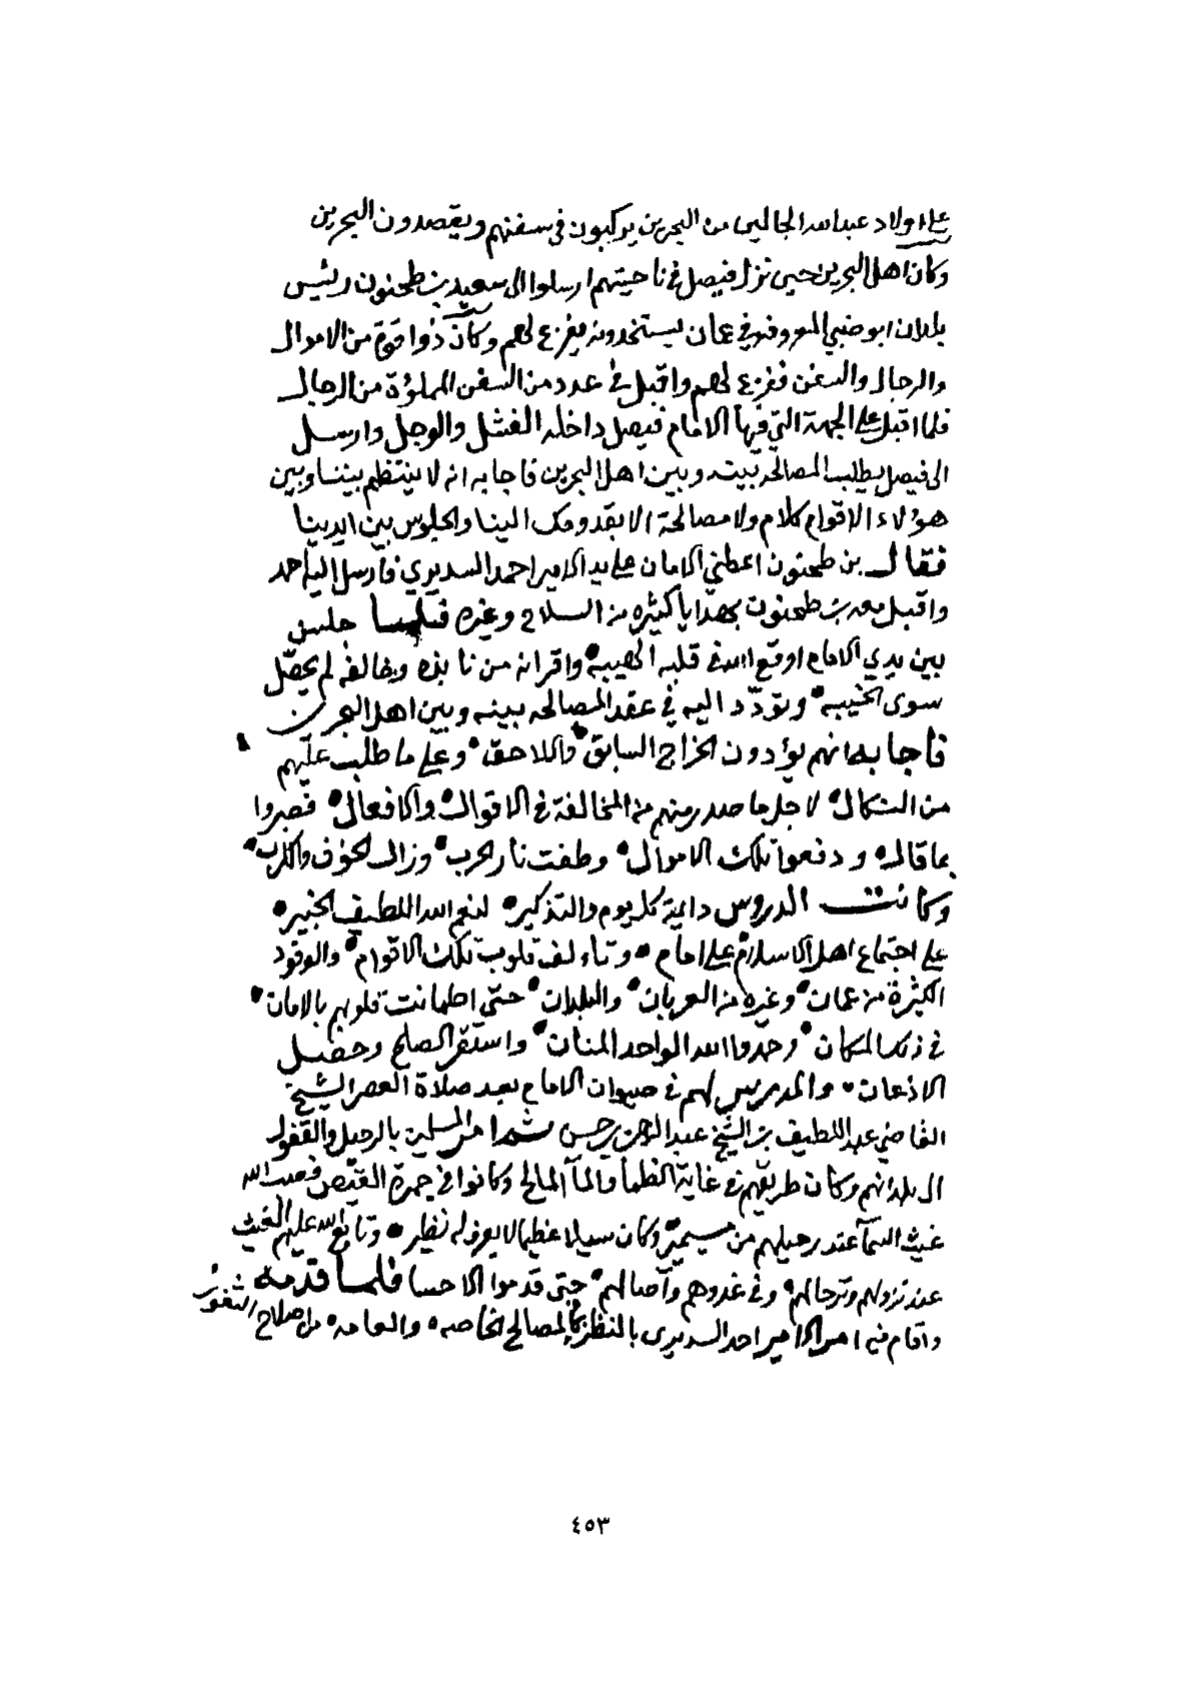 على اولاد عبدالله الجالين من البحرين يركبون في سفنهم ويقصدون البحرين
وكان اهل البحرين حين نزل فيصل في ناحيتهم ارسلوا الى سعيد بن طحنون رئيس
بلدان ابو ضبي المعروفه في عمان يستنجدونه فيفزع لهم وكان ذوا قوة من الاموال
والرجال والسفن ففزع لهم واقبل في عدد من السفن المملؤة من الرجال
فلما اقبل على الجهة التي فيها الامام فيصل داخله الفشل والوجل وارسل
الى فيصل يطلب المصالحه بينه وبين اهل البحرين فاجابه انه لا ينتظم بيننا وبين
هؤلاء الاقوام كلام ولا مصالحة الا بقدومك الينا والجلوس بين ايدينا
فقال بن طحنون اعطني الامان على يد الامير احمد السديري فأرسل اليه احمد
واقبل معه بن طحنون بهدايا كثيره من السلاح وغيره فلما جلس
بين يدي الامام اوقع الله في قلبه الهيبه واقر انه من نابذه وخالفه لم يحصّل
سوى الخيبه وتودّد اليه في عقد المصالحه بينه وبين اهل البحرين
فأجابه انهم يؤدون الخراج السابق واللاحق وعلى ما طلب عليهم
من النكال لاجل ما صدر منهم من المخالفة في الاقوال والافعال فصبروا
بما قال ودفعوا تلك الاموال وطفت نار الحرب وزال الخوف والكرب
وكانت الدروس دايمة كل يوم والتذكير لنعم الله اللطيف الخبير
على اجتماع اهل الاسلام على امام وتاءلف قلوب تلك الاقوام والوفود
الكثيرة من عمان وغيره من العربان والبلدان حتى اطمانت قلوبهم بالامان
في ذلك المكان وحمدوا الله الواحد المنان واستقر الصلح وحصل
الاذعان والمدرس لهم في صيوان الامام بعد صلاة العصر الشيخ
القاضي عبد اللطيف بن الشيخ عبد الرحمن بن حسن ثم امر المسلمين بالرحيل والقفول
الى بلدانهم وكان طريقهم في غاية الظمأ والمآ المالح وكانوا في جمرة القيض فصب الله
غيث السمآ عند رحيلهم من وكان سيلا عظيما لا يعرف له نظير وتابع الله عليهم الغيث
عند نزولهم وترحالهم وفي غدوهم وآصالهم حتى قدموا الاحسا فلما قدمه
واقام فيه امر الامير احمد السديرى بالنظر في المصالح الخاصه والعامه من اصلاح الثغور
٤٥٣